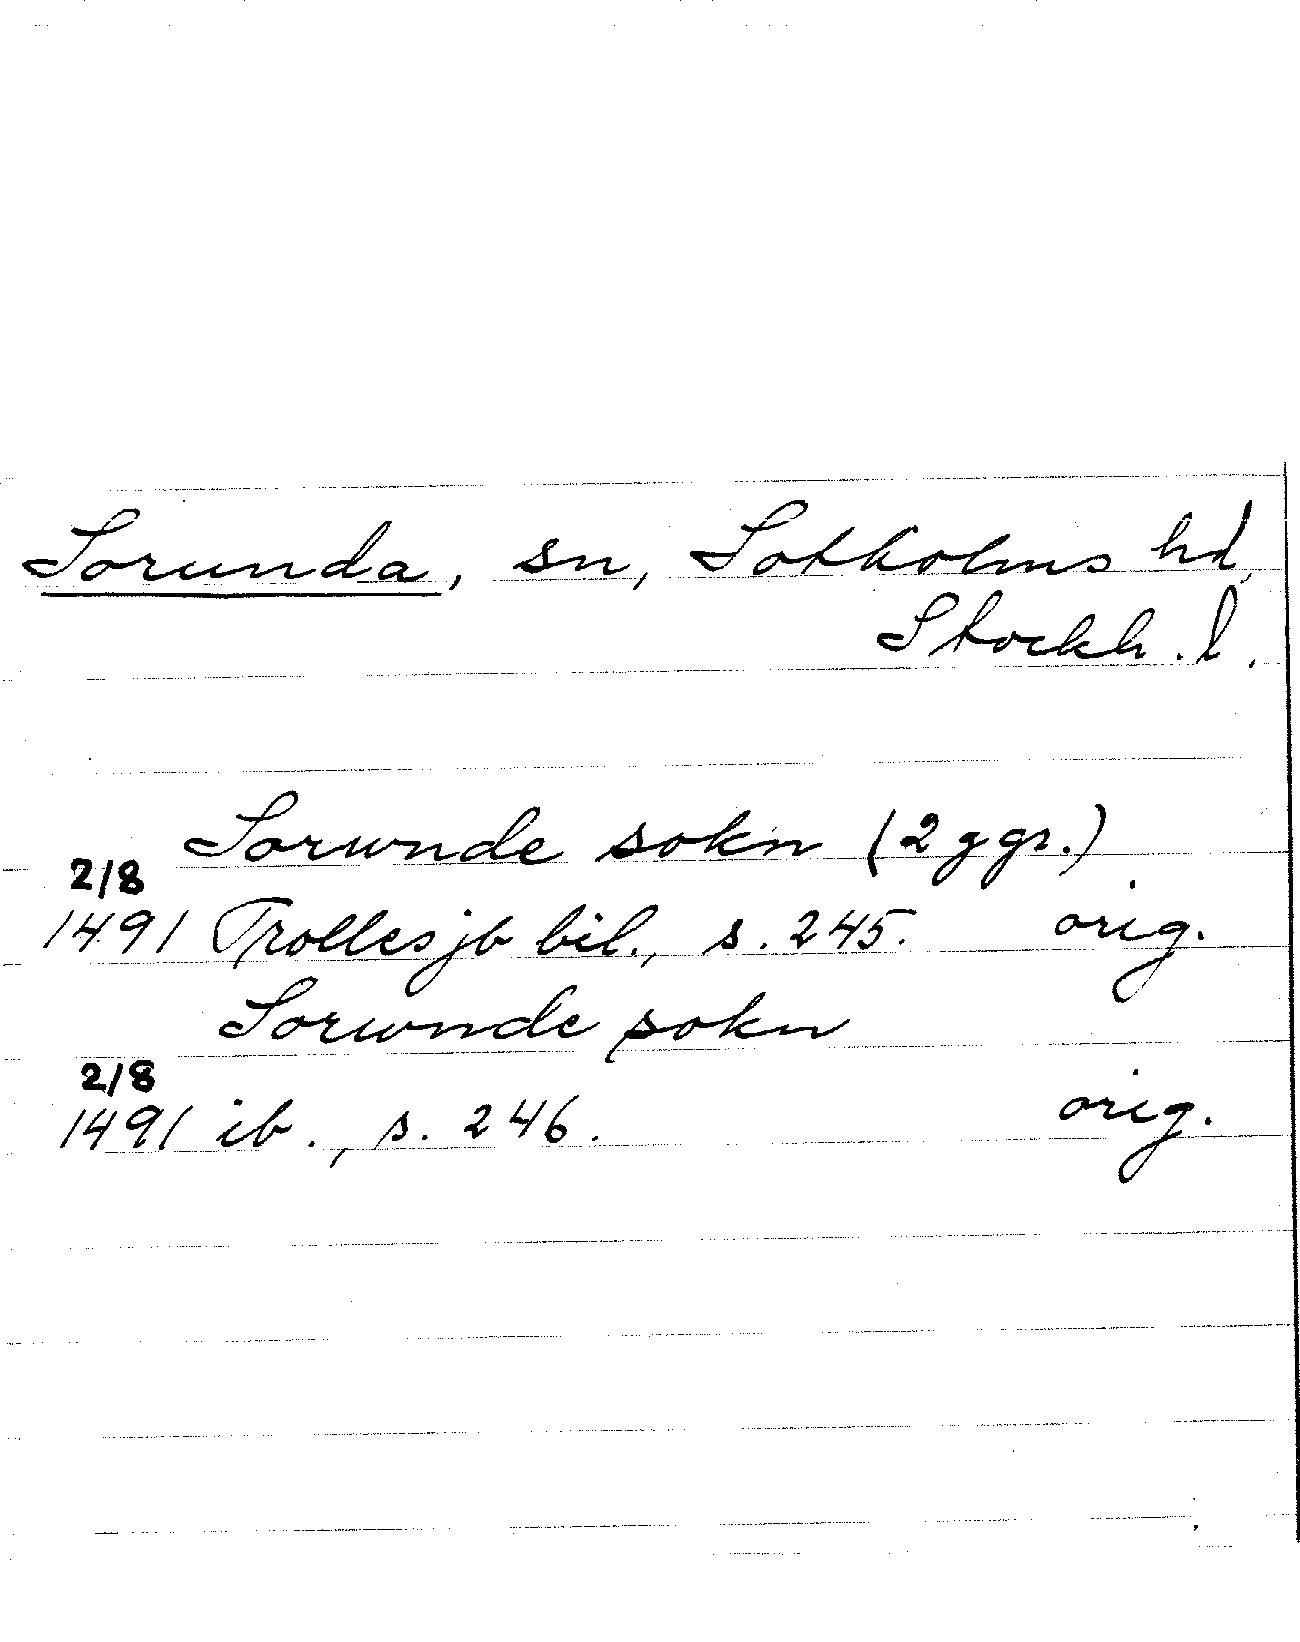 Sorunda, sn, Sotholms hd,
Stockh. l.
Sorwnde sokn (2 ggr.)
2/8
1491 Trolles jb bil., s. 245. orig.
Sorwnde sokn
2/8
1491 ib., s. 246. orig.